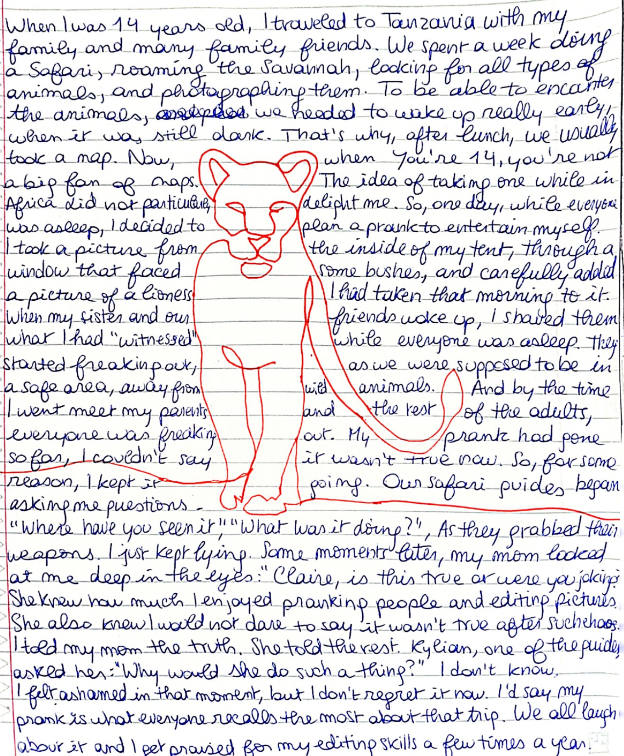 When I was 14 years old, I traveled to Tanzania with my
family and many family friends. We spent a week doing
a Safari, roaming the Savannah, looking for all types of
animals, and photographing them. To be able to encounter
the animals, we needed to wake up really early,
when it was still dark. That's why, after lunch, we usually
took a nap. Now, when you're 14, you're not
a big fan of naps. The idea of taking one while in
Africa did not particularly delight me. So, one day, while everyone
was asleep, I decided to plan a prank to entertain myself.
I took a picture from the inside of my tent, through a
window that faced some bushes, and carefully added
a picture of a lioness I had taken that morning to it.
When my sister and our friends woke up, I shared them
what I had "witnessed" while everyone was asleep. They
started freaking out, as we were supposed to be in
a safe area, away from wild animals. And by the time
I went meet my parents and the rest of the adults,
everyone was freaking out. My prank had gone
so far, I couldn't say it wasn't true now. So, for some
reason, I kept it going. Our safari guides began
asking me questions.
"Where have you seen it", "What was it doing?", As they grabbed their
weapons. I just kept lying. Some moments later, my mom looked
at me deep in the eyes: "Claire, is this true or were you joking?
She knew how much I enjoyed pranking people and editing pictures.
She also knew I would not dare to say it wasn't true after such chaos.
I told my mom the truth. She told the rest. Kylian, one of the guides,
asked her: "Why would she do such a thing?" I don't know.
I felt ashamed in that moment, but I don't regret it now. I'd say my
prank is what everyone recalls the most about that trip. We all laugh
about it and I get praised for my editing skills a few times a year.